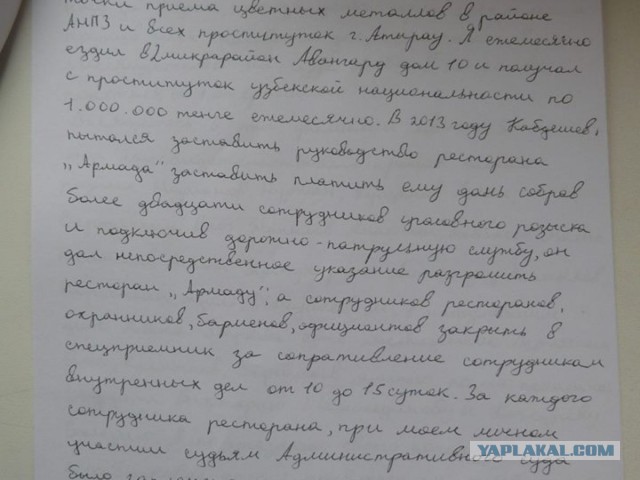 точки приема цветных металлов в районе
АНПЗ и всех проституток г. Атырау. Я ежемесячно
ездил в 2 микрарайон Авангард дом 10 и получал
с проституток узбекской национальности по
1.000.000 тенге ежемесячно. В 2013 году Кабдешев,
пытался заставить руководство ресторана
„Армада" заставить платить ему дань собрав
более двадцати сотрудников уголовного розыска
и подключив дорожно-патрульную службу, он
дал непосредственное указание разгромить
ресторан „Армаду", а сотрудников ресторанов,
охранников, барменов, официантов закрыть в
спецприемник за сопративление сотрудникам
внутренных дел от 10 до 15 суток. За каждого
сотрудника ресторана, при моем личном
участии судьям Административного суда
было
YAPLAKAL.COM